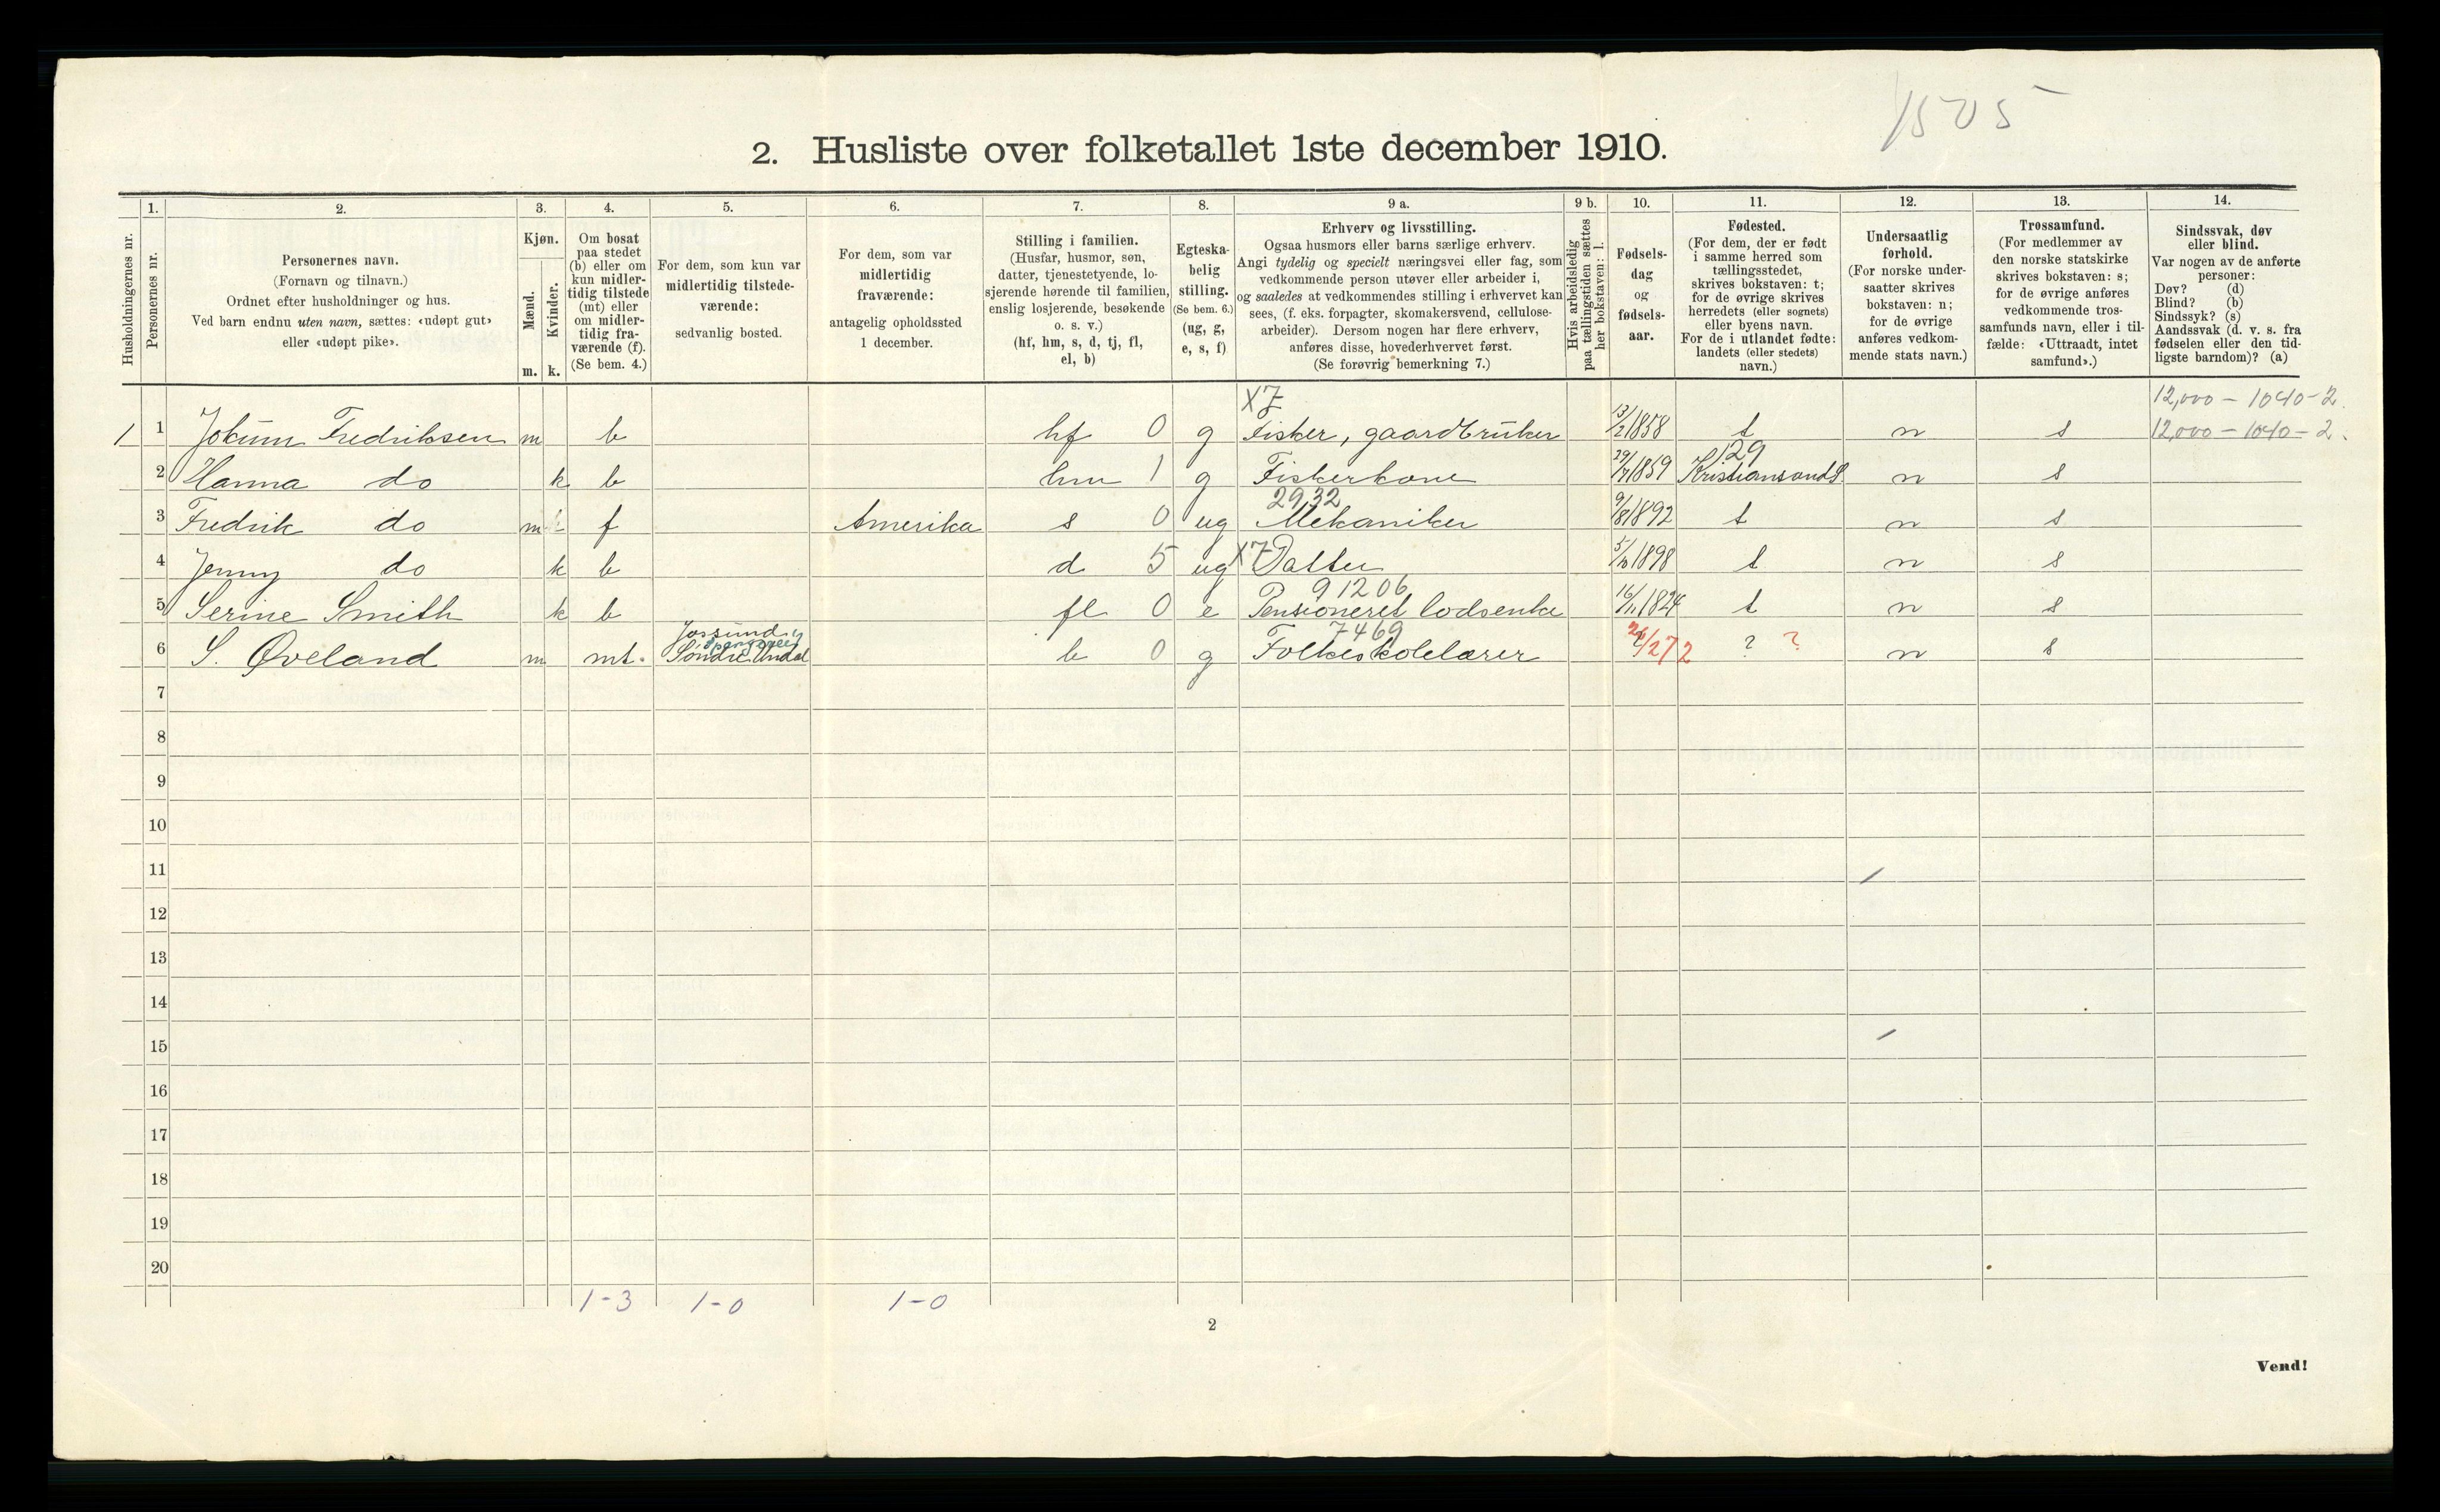 1505
2. Husliste over folketallet 1ste december 1910.
Husholdningernes nr.
1.
Personernes nr.
2.
Personernes navn.
(Fornavn og tilnavn.)
Ordnet efter husholdninger og hus.
Ved barn endnu uten navn, sættes: «udøpt gut»
eller «udøpt pike».
3.
Kjøn.
Mænd.
Kvinder.
m. k.
4.
Om bosat
paa stedet
(b) eller om
kun midler-
tidig tilstede
(mt) eller
om midler-
tidig fra-
værende (f).
(Se bem. 4.)
5.
For dem, som kun var
midlertidig tilstede-
værende:
sedvanlig bosted.
6.
For dem, som var
midlertidig
fraværende:
antagelig opholdssted
1 december.
7.
Stilling i familien.
(Husfar, husmor, søn,
datter, tjenestetyende, lo-
sjerende hørende til familien,
enslig losjerende, besøkende
o. s. v.)
(hf, hm, s, d, tj, fl,
el, b)
8.
Egteska-
belig
stilling.
(Se bem. 6.)
(ug, g,
e, s, f)
9 a.
Erhverv og livsstilling.
Ogsaa husmors eller barns særlige erhverv.
Angi tydelig og specielt næringsvei eller fag, som
vedkommende person utøver eller arbeider i,
og saaledes at vedkommendes stilling i erhvervet kan
sees, (f. eks. forpagter, skomakersvend, cellulose-
arbeider). Dersom nogen har flere erhverv,
anføres disse, hovederhvervet først.
(Se forøvrig bemerkning 7.)
9 b.
Hvis arbeidsledig
paa tællingstiden sættes
her bokstaven: l.
10.
Fødsels-
dag
og
fødsels-
aar.
11.
Fødested.
(For dem, der er født
i samme herred som
tællingsstedet,
skrives bokstaven: t;
for de øvrige skrives
herredets (eller sognets)
eller byens navn.
For de i utlandet fødte:
landets (eller stedets)
navn.)
12.
Undersaatlig
forhold.
(For norske under-
saatter skrives
bokstaven: n;
for de øvrige
anføres vedkom-
mende stats navn.)
13.
Trossamfund.
(For medlemmer av
den norske statskirke
skrives bokstaven: s;
for de øvrige anføres
vedkommende tros-
samfunds navn, eller i til-
fælde: «Uttraadt, intet
samfund».)
14.
Sindssvak, døv
eller blind.
Var nogen av de anførte
personer:
Døv? (d)
Blind? (b)
Sindssyk? (s)
Aandssvak (d. v. s. fra
fødselen eller den tid-
ligste barndom)? (a)
X7 12,000 - 1040 - 2
1 1 Jokum Fredriksen m b hf 0 g Fisker, gaardbruker 13/2 1858 t n s 12,000 - 1040 - 2.
129
2 Hanna do k b hm 1 g Fiskerkone 1859 Kristiansand S. n s
2932
3 Fredrik do m f Amerika s 0 ug Mekaniker 9/8 1892 t n s
4 Jenny do k b d 5 ug X7 Datter 1898 t n s
91206
5 Serine Smith k b fl 0 e Pensioneret lodsenke 16/11 1824 t n s
Jossund
7469
6 S. Øveland m mt. Søndre Undal b 0 g Folkeskolelærer ? ? n s
7
8
9
10
11
12
13
14
15
16
17
18
19
20
1-3 1-0 1-0
2
Vend!